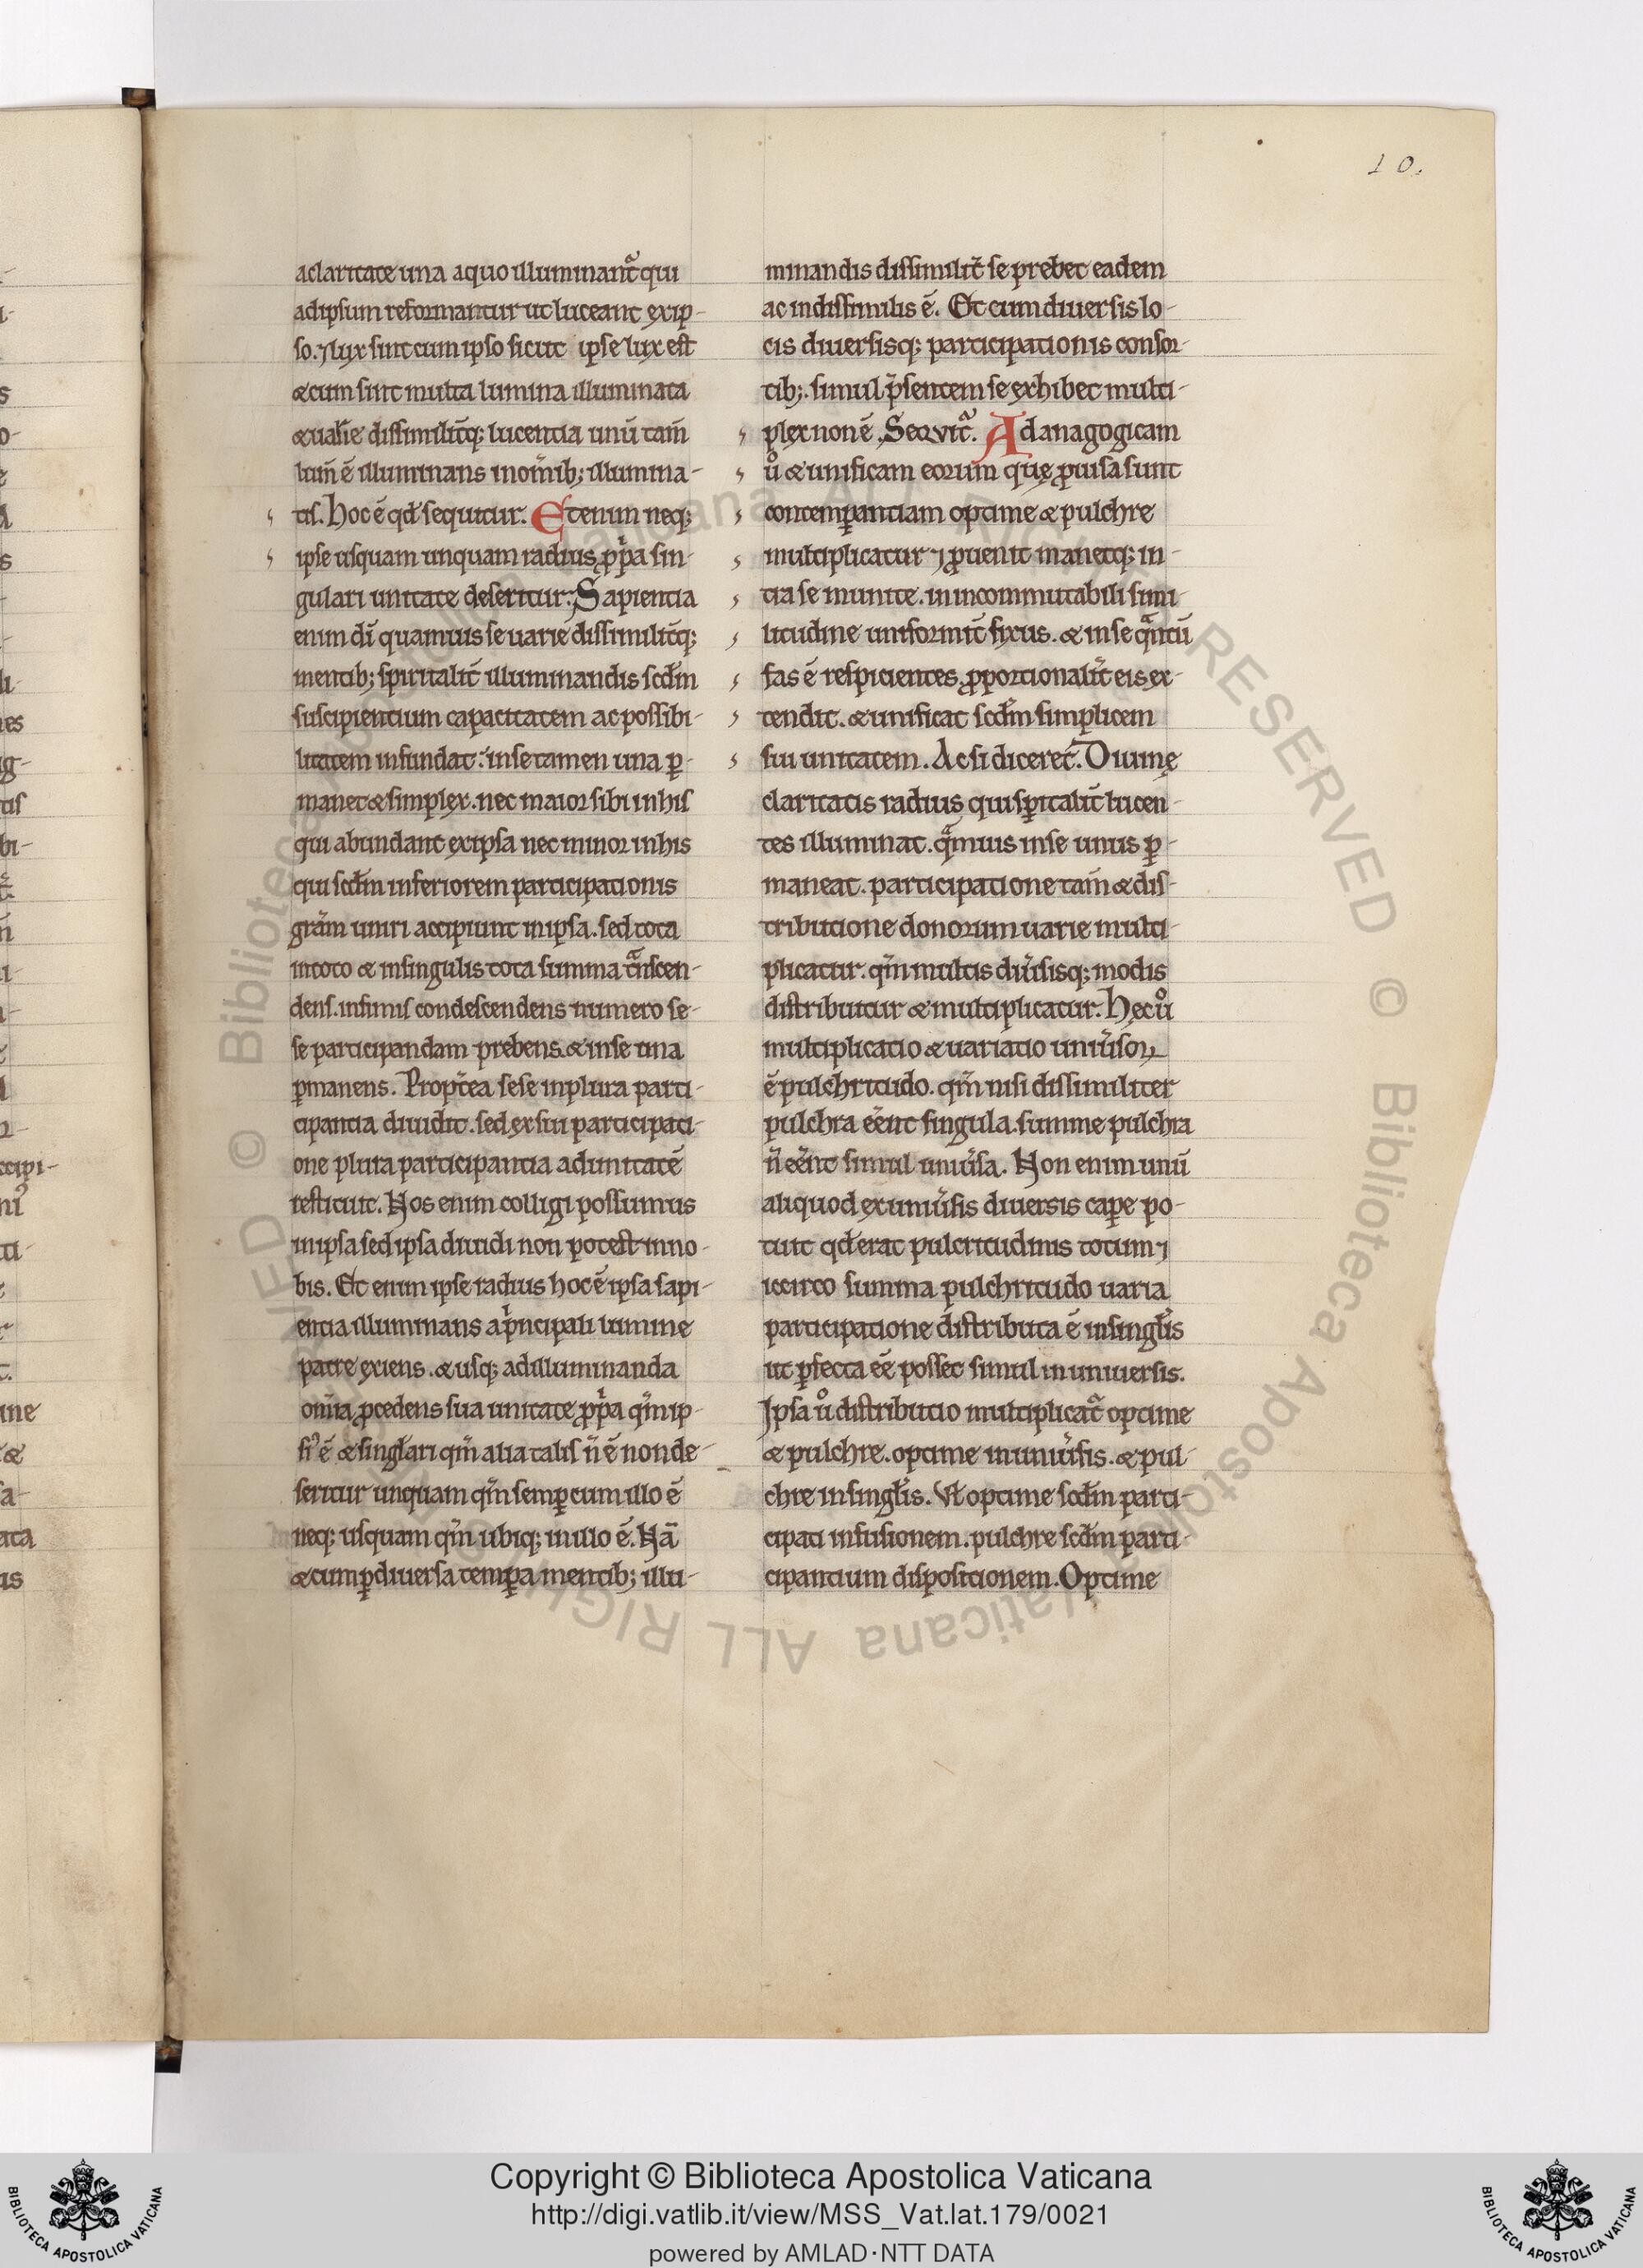 10.
a claritate una a quo illuminant᷑ qui
ad ipsum reformantur ut luceant ex ip-
so. ⁊ lux sint cum ipso sicut ipse lux est
& cum sint multa lumina illuminata
& uarie dissimilit̄q; lucentia unū tam̄
lum̄ ē illuminans in om̄ib; illumina-
tis. Hoc ē qd̄ sequitur. Etenim neq;
ipse usquam unquam radius ꝓpͥa sin-
gulari unitate deseritur. Sapientia
enim dī quamuis se uarie dissimilit̄q;
mentib; spiritalit̄ illuminandis scd̄m
suscipientium capacitatem ac possibi-
litatem infundat. in se tamen una ꝑ-
manet & simplex. nec maior sibi in his
qui abundant ex ipsa nec minor in his
qui scd̄m inferiorem participationis
grām uniri accipiunt in ipsa. sed tota
in toto & in singulis tota summa tᷓnscen-
dens. infimis condescendens numero se-
se participandam prebens. & in se una
ꝑmanens. Propt̄ea sese in plura parti-
cipantia diuidit. sed ex sui participati-
one plura participantia ad unitatē
restituit. Nos enim colligi possumus
in ipsa sed ipsa diuidi non potest in no-
bis. Et enim ipse radius hoc ē ipsa sapi-
entia illuminans a pͥncipali lumine
patre exiens. & usq; ad illuminanda
om̄ia ꝓcedens sua unitate ꝓpͥa qm̄ ip-
siꝰ ē & singlari qm̄ alia talis n̄ ē non de-
seritur unquam qm̄ semꝑ cum illo ē
neq; usquam qm̄ ubiq; in illo ē. Nā
& cum ꝑ diuersa temꝑa mentib; illu-
minandis dissimilit̄ se prebet eadem
ac indissimilis ē. Et cum diuersis lo-
cis diuersisq; participationis consor-
tib;. simul p̄sentem se exhibet multi-
plex non ē. Sequit᷑. Ad anagogicam
uͦ & unificam eorum quę ꝓuisa sunt
contemꝑantiam optime & pulchre
multiplicatur ⁊ ꝓuenit manetq; in-
tra se munite. in incommutabili simi-
litudine uniformit̄ fixus. & in se qᷓntū
fas ē respicientes ꝓportionalit̄ eis ex-
tendit. & unificat scd̄m simplicem
sui unitatem. Ac si diceret. Diuinę
claritatis radius qui spiritalit̄ lucen-
tes illuminat. qᷓmuis in se unus ꝑ-
maneat. participatione tam̄ & dis-
tributione donorum uarie multi-
plicatur. qm̄ multis diu̓sisq; modis
distribuitur & multiplicatur. Hęc uͦ
multiplicatio & uariatio uniu̓soꝝ
ē pulchritudo. qm̄ nisi dissimiliter
pulchra eēnt singula. summe pulchra
n̄ eēnt simul uniu̓sa. Non enim unū
aliquod ex uniu̓sis diuersis capꝑe po-
tuit qd̄ erat pulcritudinis totum ⁊
iccirco summa pulchritudo uaria
participatione distributa ē in singl̓is
ut ꝑfecta eē posset simul in uniuersis.
Ipsa uͦ distributio multiplicat᷑ optime
& pulchre. optime in uniu̓sis. & pul-
chre in singl̓is. Vt optime scd̄m parti-
cipati infusionem. pulchre scd̄m parti-
cipantium dispositionem. Optime
© Biblioteca Apostolica Vaticana ALL RIGHTS RESERVED
Copyright © Biblioteca Apostolica Vaticana
http://digi.vatlib.it/view/MSS_Vat.lat.179/0021
powered by AMLAD·NTT DATA
BIBLIOTECA APOSTOLICA VATICANA
BIBLIOTECA APOSTOLICA VATICANA